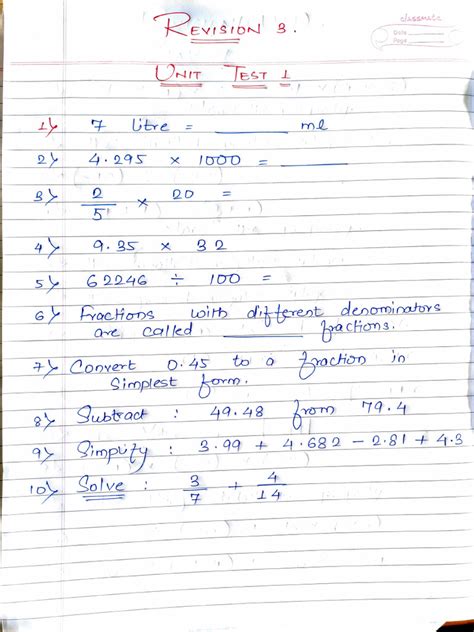 REVISION 3.
classmate
Date
Page
UNIT TEST 1
1) 7 litre = ______ ml
2) 4.295 x 1000 = ______
3) 2/5 x 20 =
4) 9.35 x 32
5) 62246 ÷ 100 =
6) Fractions with different denominators
are called ______ fractions.
7) Convert 0.45 to a fraction in
simplest form.
8) Subtract : 49.48 from 79.4
9) Simplify : 3.99 + 4.682 - 2.81 + 4.3
10) Solve : 3/7 + 4/14